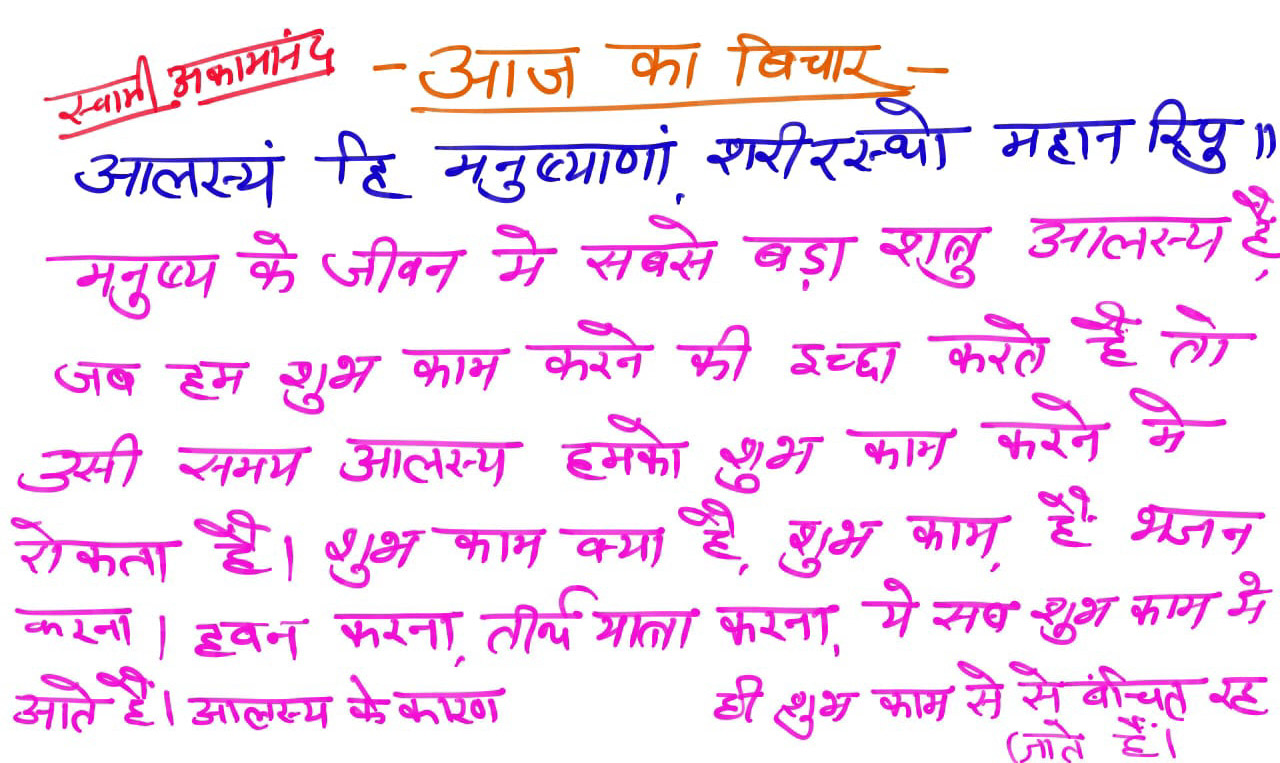 स्वामी अकामानंद
- आज का बिचार -
आलस्यं हि मनुष्याणां, शरीरस्थो महान रिपु ॥
मनुष्य के जीवन मे सबसे बड़ा शत्रु आलस्य हैं,
जब हम शुभ काम करने की इच्छा करते हैं तो
उसी समय आलस्य हमको शुभ काम करने मे
रोकता है। शुभ काम क्या है, शुभ काम, हैं भजन
करना। हवन करना, तीर्थ यात्रा करना, ये सब शुभ काम मे
आते हैं। आलस्य के कारण ही शुभ काम से से बंचित रह
जाते हैं।